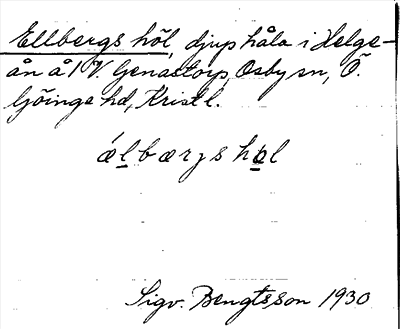 Ellbergs höl, djup håla i Helge-
ån å V. Genastorp, Osby sn, Ö.
Göinge hd, Kristl.
ǽlbærjs hol
Sigv. Bengtsson 1930